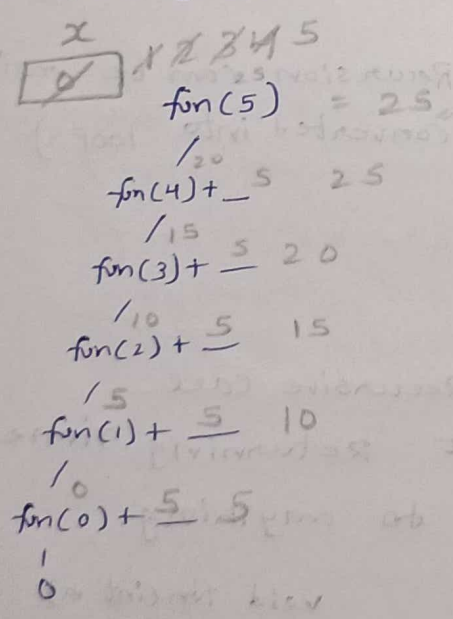 x
0 1 2 3 4 5
fun(5) = 25
20
fun(4) + 5 25
15
fun(3) + 5 20
10
fun(2) + 5 15
5
fun(1) + 5 10
0
fun(0) + 5 5
0